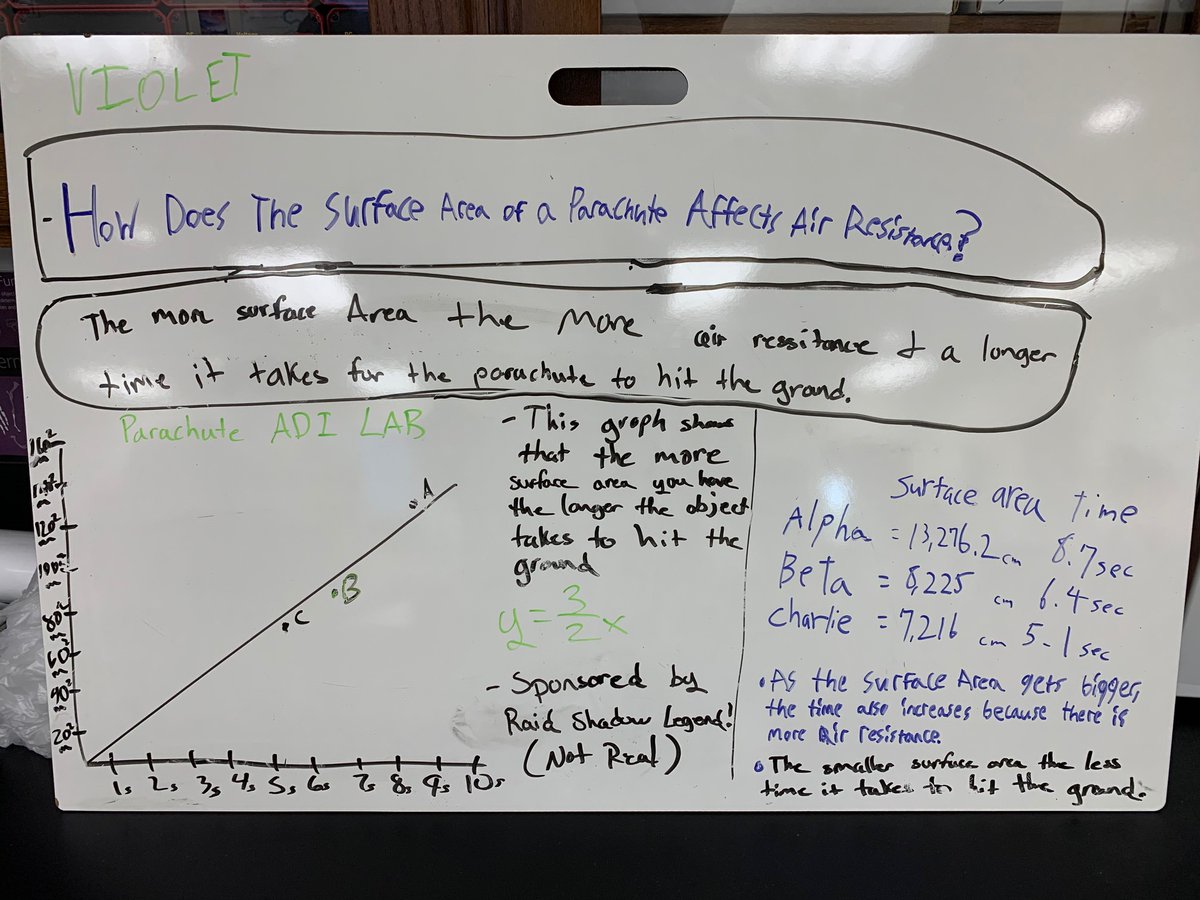 VIOLET
- How Does The Surface Area of a Parachute Affects Air Resistance?
The more surface Area the More air ressitance & a longer
time it takes for the parachute to hit the grand.
Parachute ADI LAB
120²
80²
20²
A
B
C
1s 2s 3s 4s 5s 6s 7s 8s 9s 10s
- This graph shows
that the more
surface area you have
the longer the object
takes to hit the
ground
y = 3/2 x
- Sponsored by
Raid Shadow Legend!
(Not Real)
Surface area time
Alpha = 13,276.2 cm 8.7 sec
Beta = 8,225 cm 6.4 sec
Charlie = 7,216 cm 5.1 sec
• As the surface Area gets bigger,
the time also increases because there is
more air resistance.
• The smaller surface area the less
time it takes to hit the ground.